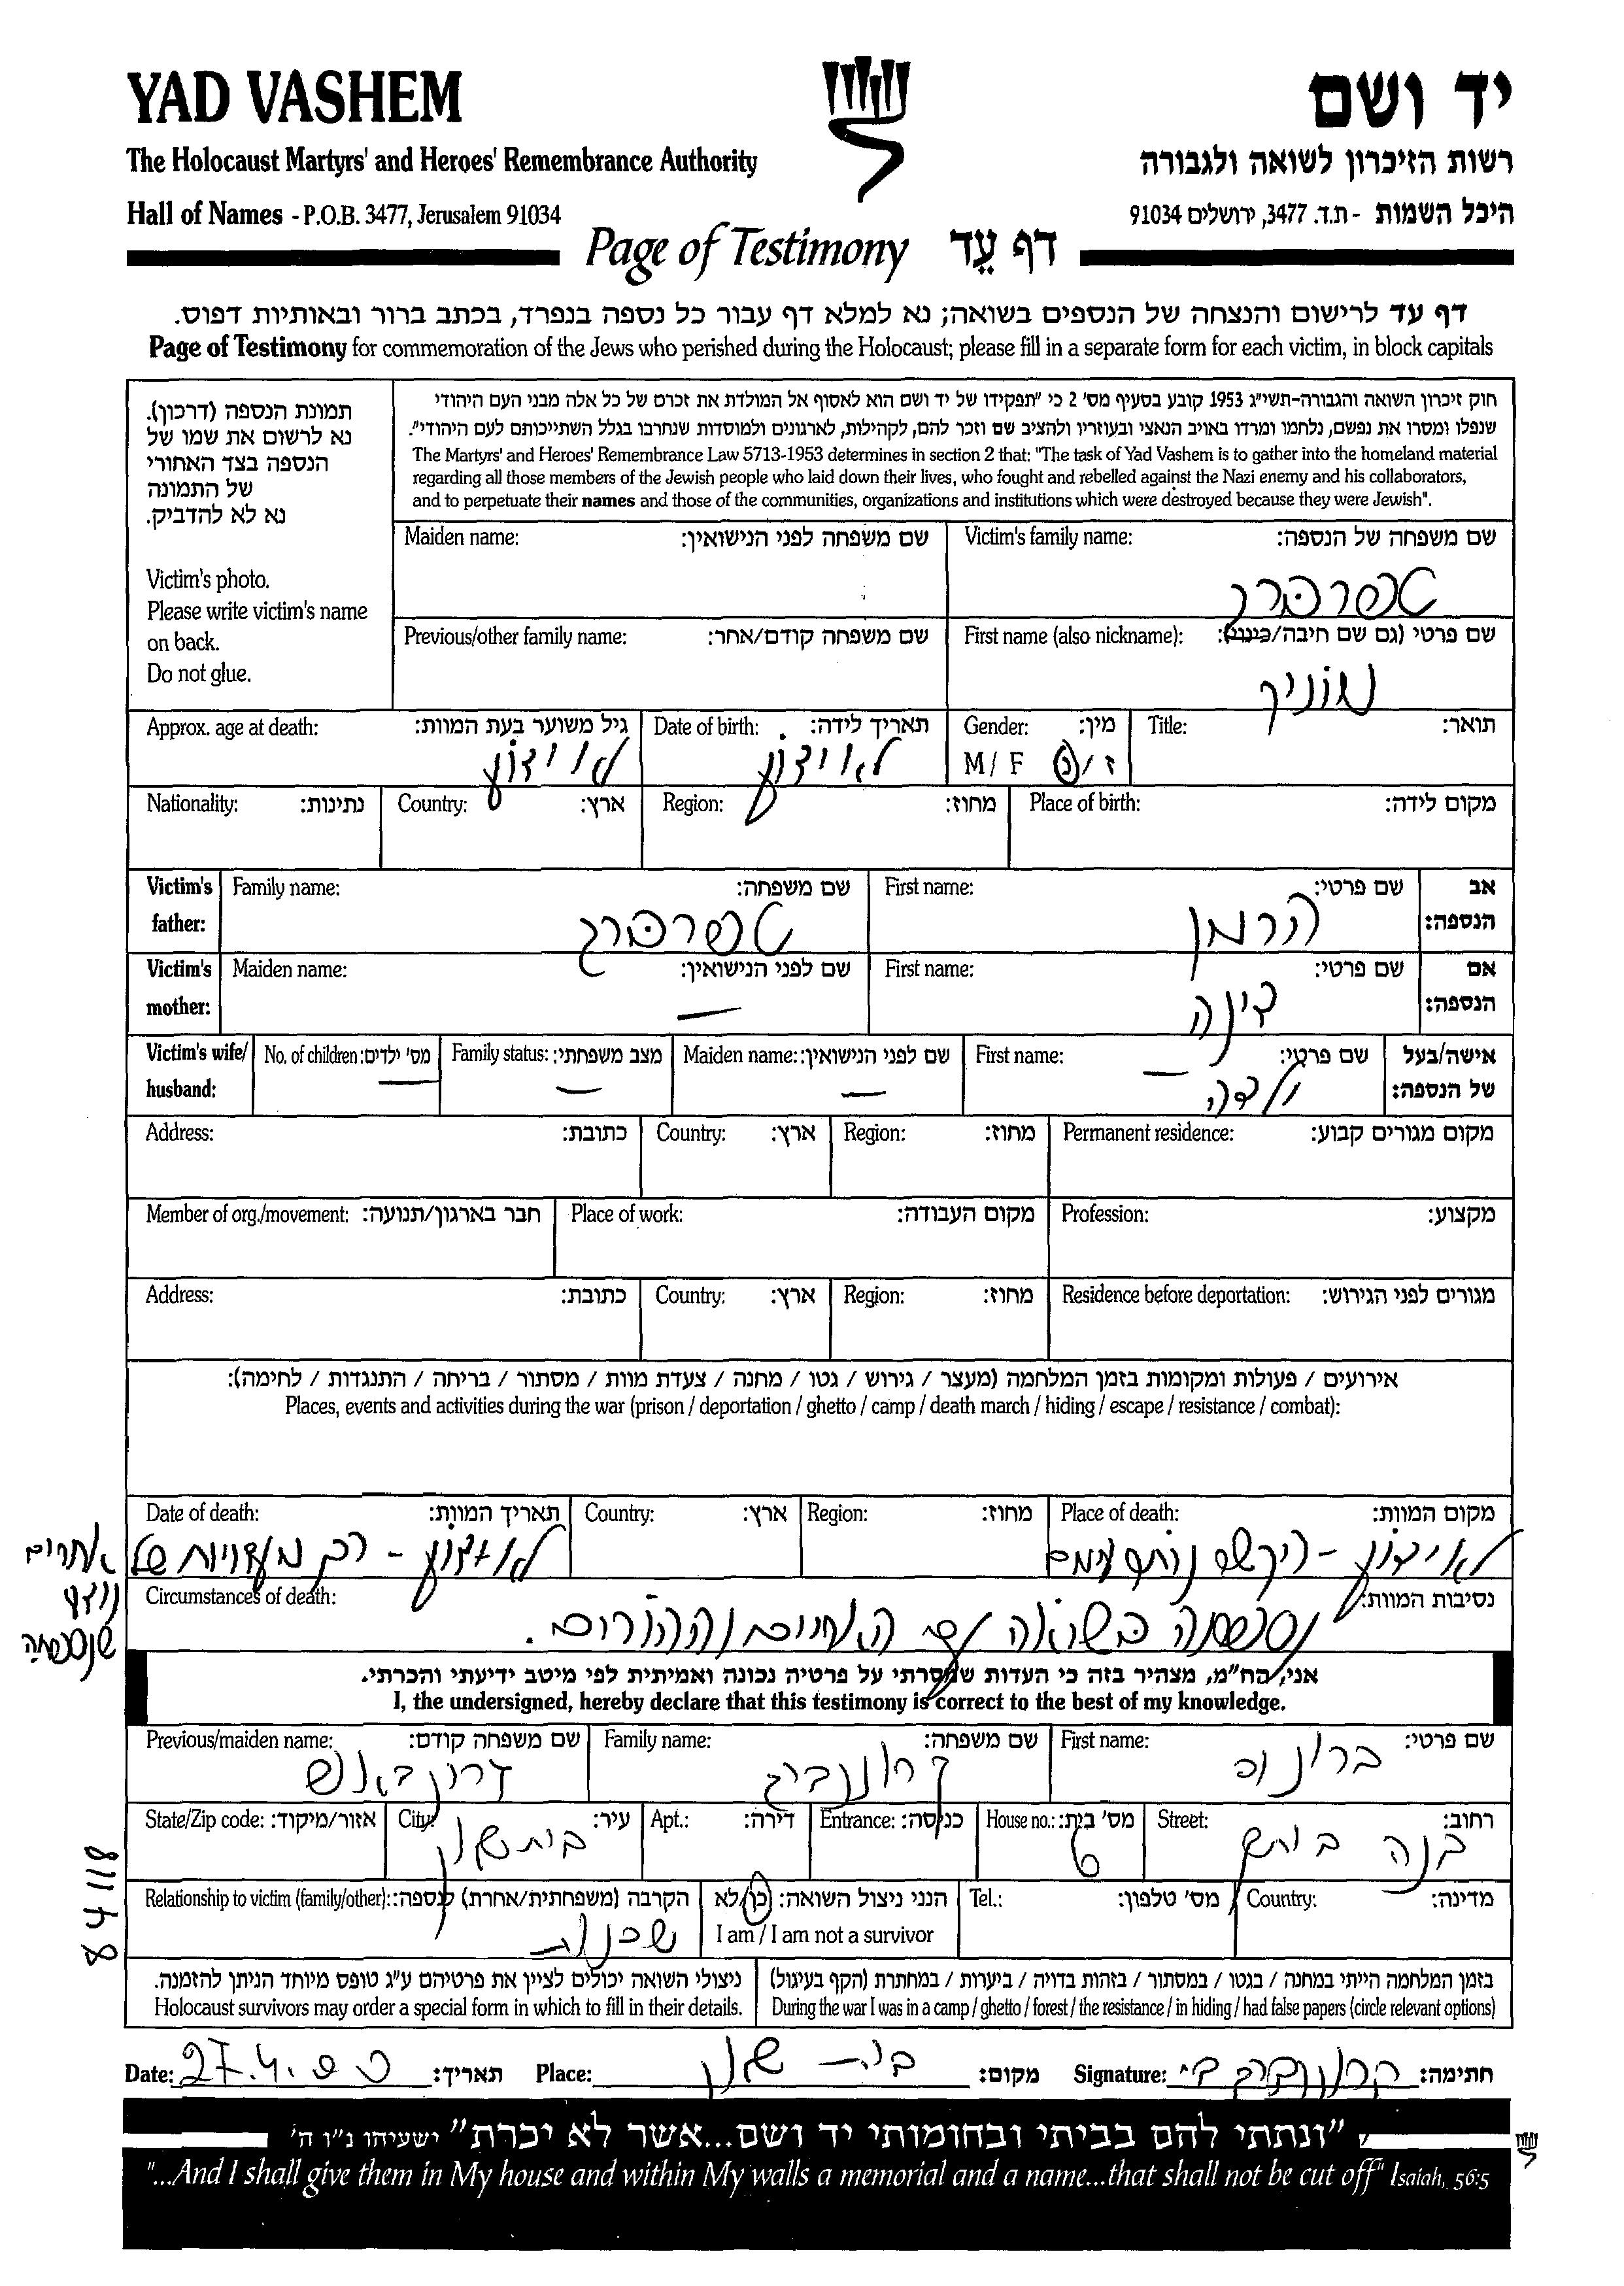 YAD VASHEM
יד ושם
The Holocaust Martyrs' and Heroes' Remembrance Authority
רשות הזיכרון לשואה ולגבורה
Hall of Names - P.O.B. 3477, Jerusalem 91034
היכל השמות - ת.ד. 3477, ירושלים 91034
Page of Testimony דף עֵד
דף עד לרישום והנצחה של הנספים בשואה; נא למלא דף עבור כל נספה בנפרד, בכתב ברור ובאותיות דפוס.
Page of Testimony for commemoration of the Jews who perished during the Holocaust; please fill in a separate form for each victim, in block capitals
תמונת הנספה (דרכון).
נא לרשום את שמו של
הנספה בצד האחורי
של התמונה
נא לא להדביק.
Victim's photo.
Please write victim's name
on back.
Do not glue.
חוק זיכרון השואה והגבורה-תשי"ג 1953 קובע בסעיף מס' 2 כי "תפקידו של יד ושם הוא לאסוף אל המולדת את זכרם של כל אלה מבני העם היהודי
שנפלו ומסרו את נפשם, נלחמו ומרדו באויב הנאצי ובעוזריו ולהציב שם וזכר להם, לקהילות, לארגונים ולמוסדות שנחרבו בגלל השתייכותם לעם היהודי".
The Martyrs' and Heroes' Remembrance Law 5713-1953 determines in section 2 that: "The task of Yad Vashem is to gather into the homeland material
regarding all those members of the Jewish people who laid down their lives, who fought and rebelled against the Nazi enemy and his collaborators,
and to perpetuate their names and those of the communities, organizations and institutions which were destroyed because they were Jewish".
Maiden name: שם משפחה לפני הנישואין: Victim's family name: שם משפחה של הנספה:
Previous/other family name: שם משפחה קודם/אחר: First name (also nickname): שם פרטי (גם שם חיבה/כינוי):
מוניק
Approx. age at death: גיל משוער בעת המוות: Date of birth: תאריך לידה: Gender: מין: Title: תואר:
לא ידוע לא ידוע M / F ז / נ
Nationality: נתינות: Country: ארץ: Region: מחוז: Place of birth: מקום לידה:
Victim's father: Family name: שם משפחה: First name: שם פרטי: אב הנספה:
הרמן
Victim's mother: Maiden name: שם לפני הנישואין: First name: שם פרטי: אם הנספה:
— צינה
Victim's wife/ husband: No. of children: מס' ילדים: Family status: מצב משפחתי: Maiden name: שם לפני הנישואין: First name: שם פרטי: אישה/בעל של הנספה:
— — — — ילדה
Address: כתובת: Country: ארץ: Region: מחוז: Permanent residence: מקום מגורים קבוע:
Member of org./movement: חבר בארגון/תנועה: Place of work: מקום העבודה: Profession: מקצוע:
Address: כתובת: Country: ארץ: Region: מחוז: Residence before deportation: מגורים לפני הגירוש:
אירועים / פעולות ומקומות בזמן המלחמה (מעצר / גירוש / גטו / מחנה / צעדת מוות / מסתור / בריחה / התנגדות / לחימה):
Places, events and activities during the war (prison / deportation / ghetto / camp / death march / hiding / escape / resistance / combat):
Date of death: תאריך המוות: Country: ארץ: Region: מחוז: Place of death: מקום המוות:
לא ידוע -
לא ידוע - רק מעדויות של
אחרים
נודע
שנספתה
Circumstances of death: נסיבות המוות:
נספתה בשואה עם האחים וההורים.
אני, הח"מ, מצהיר בזה כי העדות שמסרתי על פרטיה נכונה ואמיתית לפי מיטב ידיעתי והכרתי.
I, the undersigned, hereby declare that this testimony is correct to the best of my knowledge.
Previous/maiden name: שם משפחה קודם: Family name: שם משפחה: First name: שם פרטי:
State/Zip code: אזור/מיקוד: City: עיר: Apt.: דירה: Entrance: כניסה: House no.: מס' בית: Street: רחוב:
בית שאן
Relationship to victim (family/other): הקרבה (משפחתית/אחרת) לנספה: הנני ניצול השואה: כן/לא Tel.: מס' טלפון: Country: מדינה:
שכנות I am / I am not a survivor
84118
ניצולי השואה יכולים לציין את פרטיהם ע"ג טופס מיוחד הניתן להזמנה.
Holocaust survivors may order a special form in which to fill in their details.
בזמן המלחמה הייתי במחנה / בגטו / במסתור / בזהות בדויה / ביערות / במחתרת (הקף בעיגול)
During the war I was in a camp / ghetto / forest / the resistance / in hiding / had false papers (circle relevant options)
Date: 27.4. תאריך: Place: שאן מקום: Signature: חתימה:
"ונתתי להם בביתי ובחומותי יד ושם...אשר לא יכרת" ישעיהו נ"ו ה'
"...And I shall give them in My house and within My walls a memorial and a name...that shall not be cut off" Isaiah, 56:5